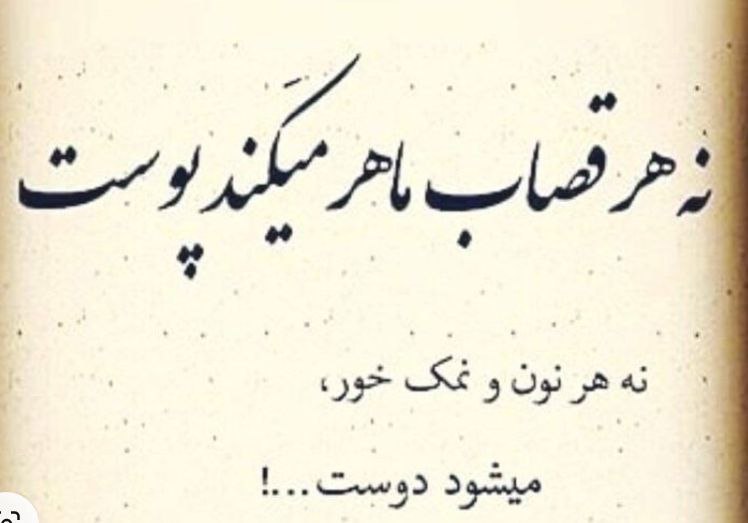 نه هر قصاب ماهر میکَند پوست
نه هر نون و نمک خور،
میشود دوست...!